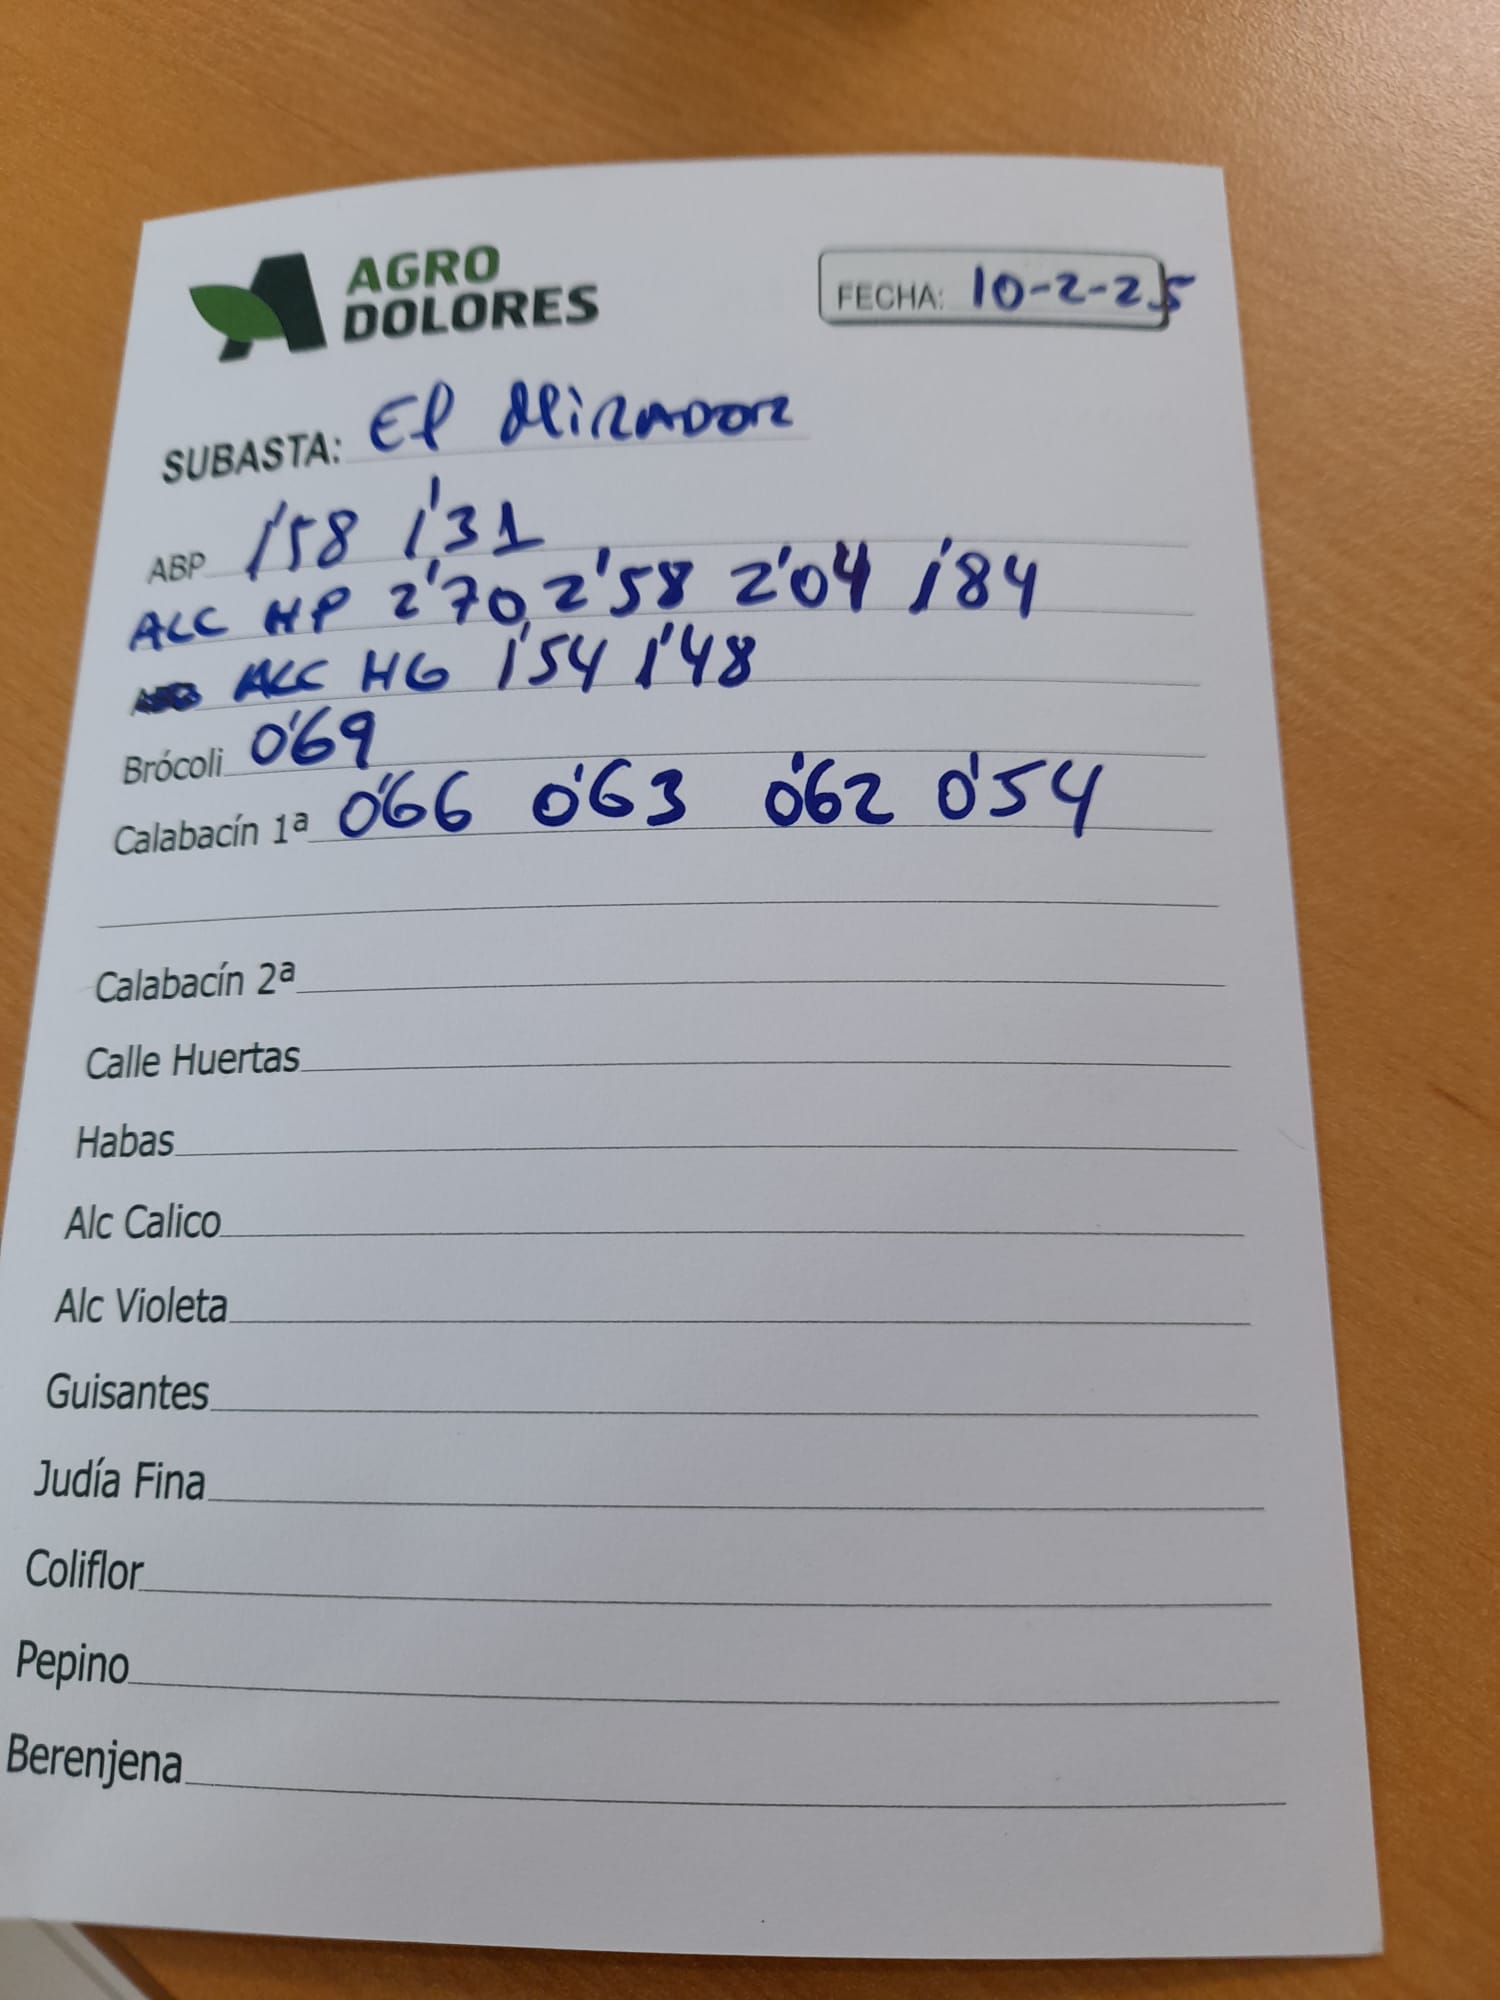 AGRO
DOLORES
FECHA: 10-2-25
SUBASTA: El MiRADOR
ABP 1'58 1'31
ALC HP 2'70 2'58 2'04 1'84
ALC HG 1'54 1'48
Brócoli 0'69
Calabacín 1ª 0'66 0'63 0'62 0'54
Calabacín 2ª
Calle Huertas
Habas
Alc Calico
Alc Violeta
Guisantes
Judía Fina
Coliflor
Pepino
Berenjena